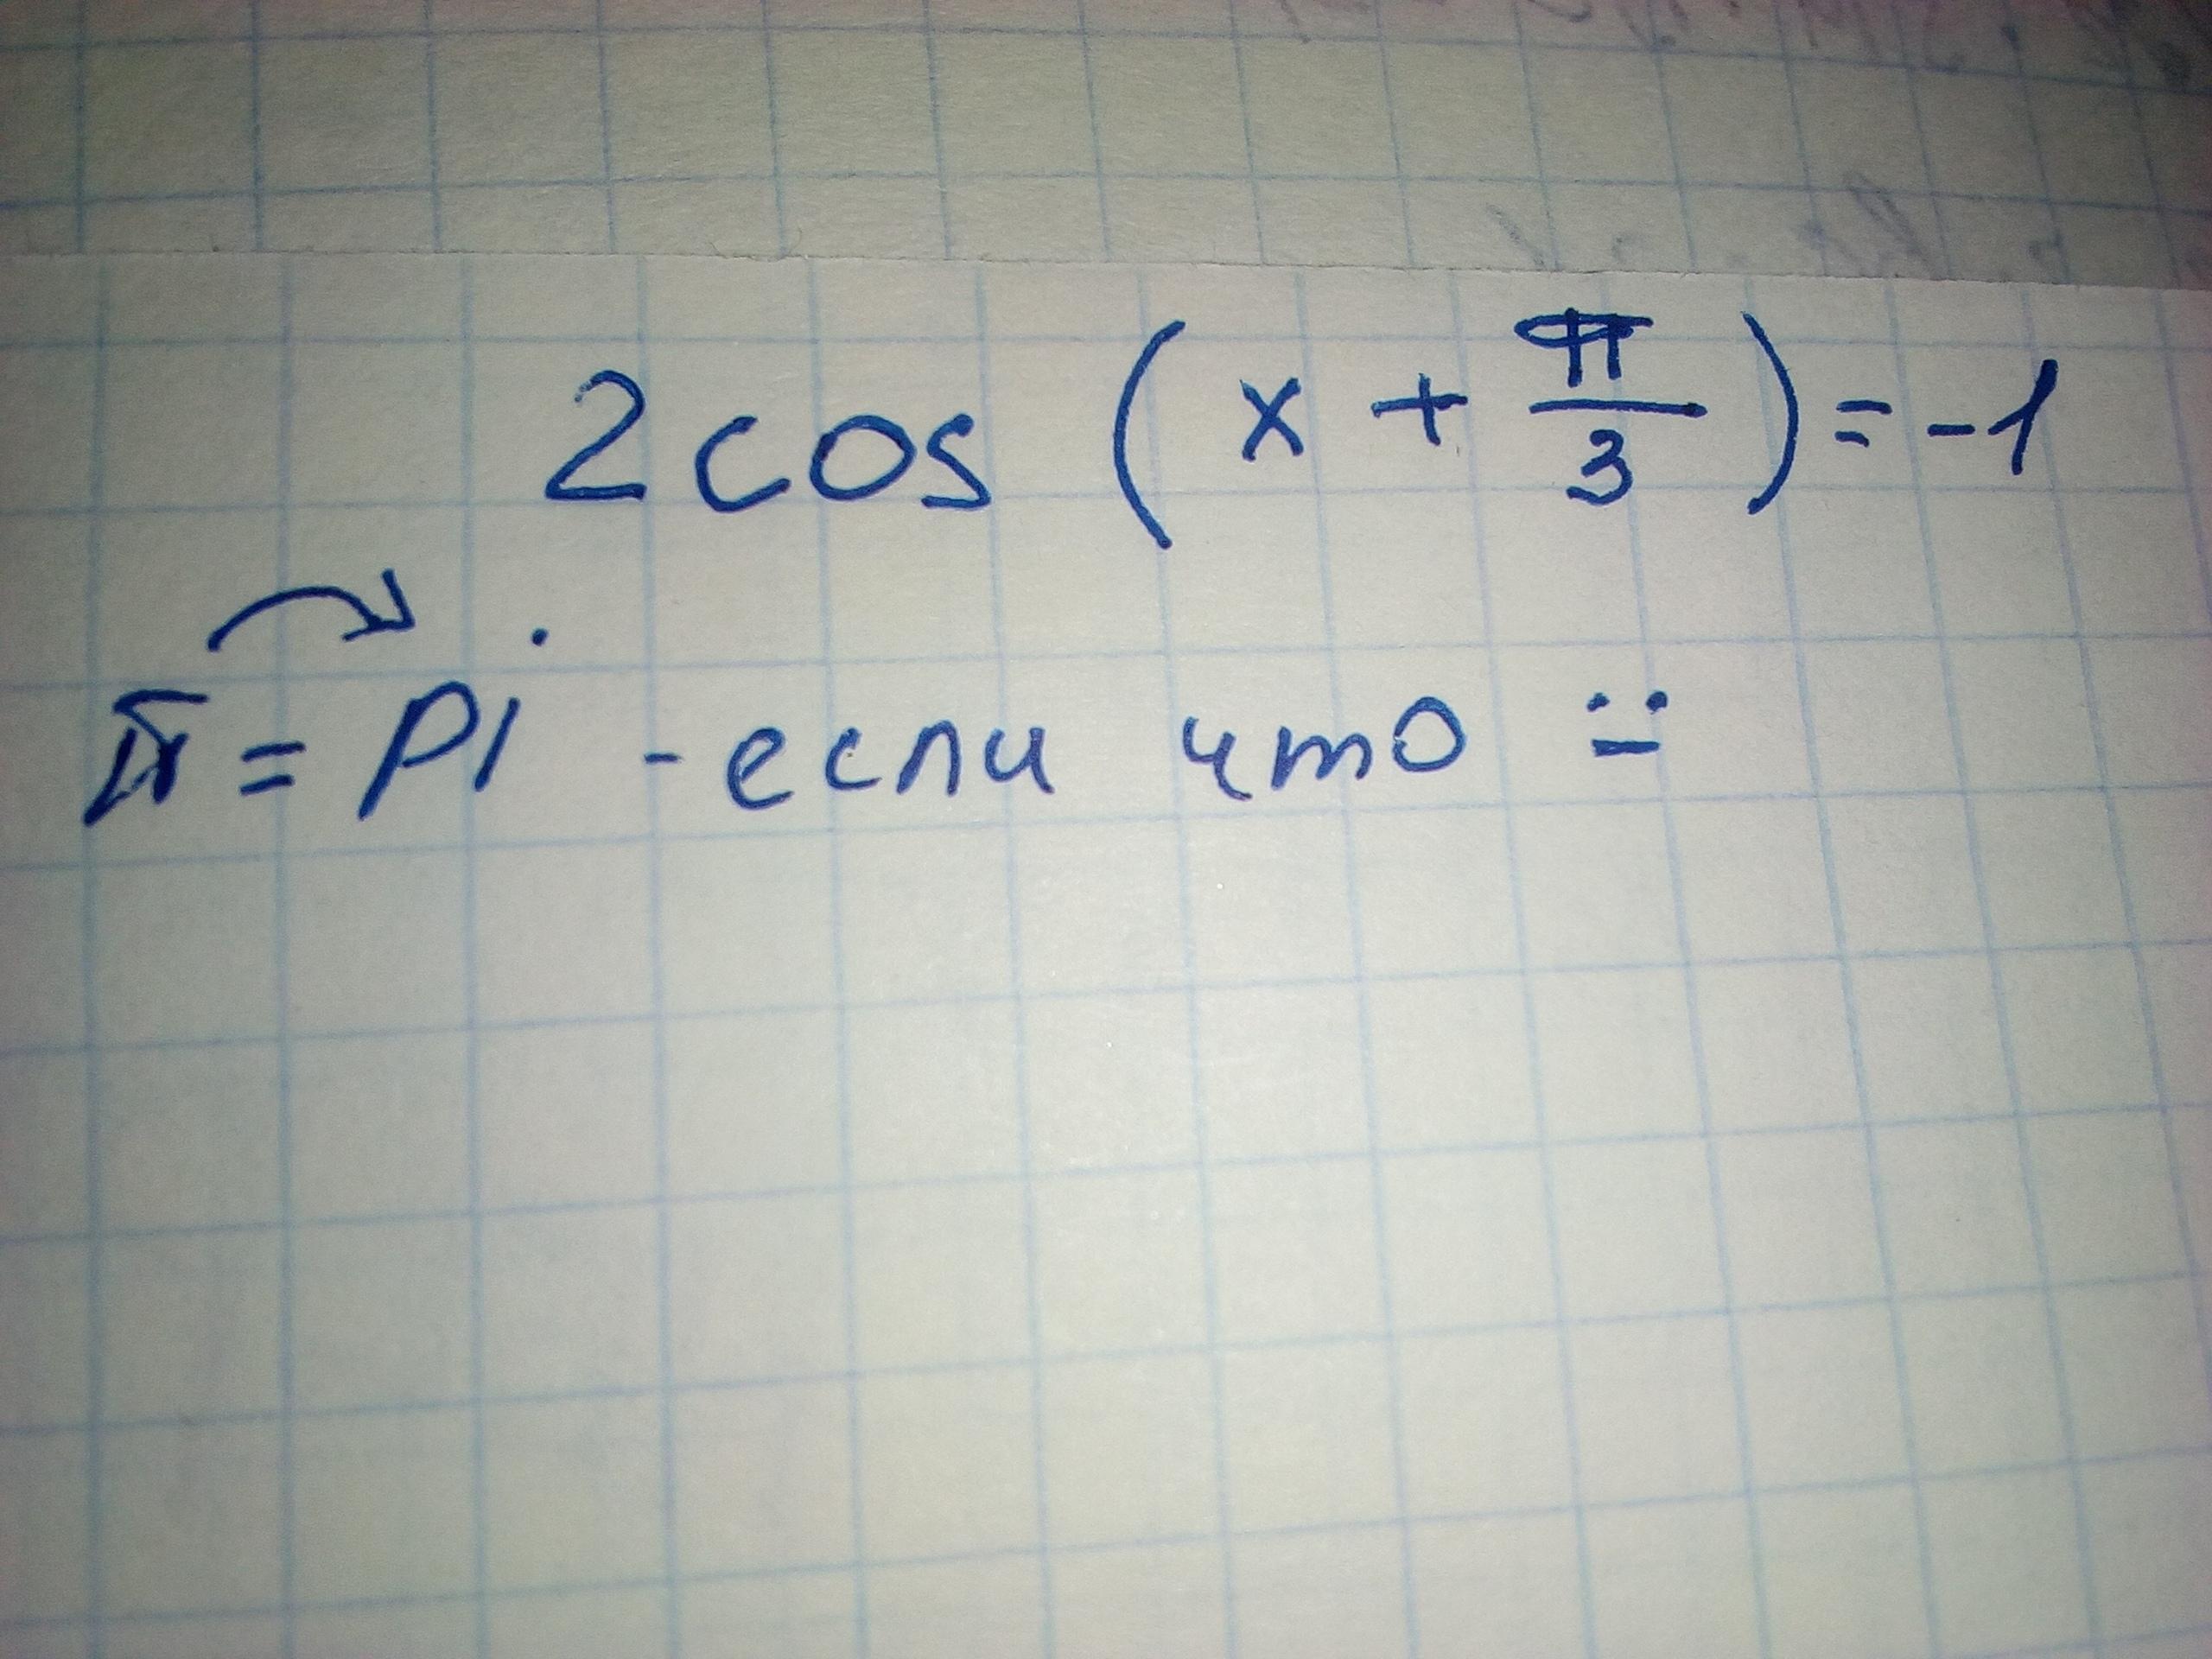 2cos (x + π/3) = -1
π = Pi - если что